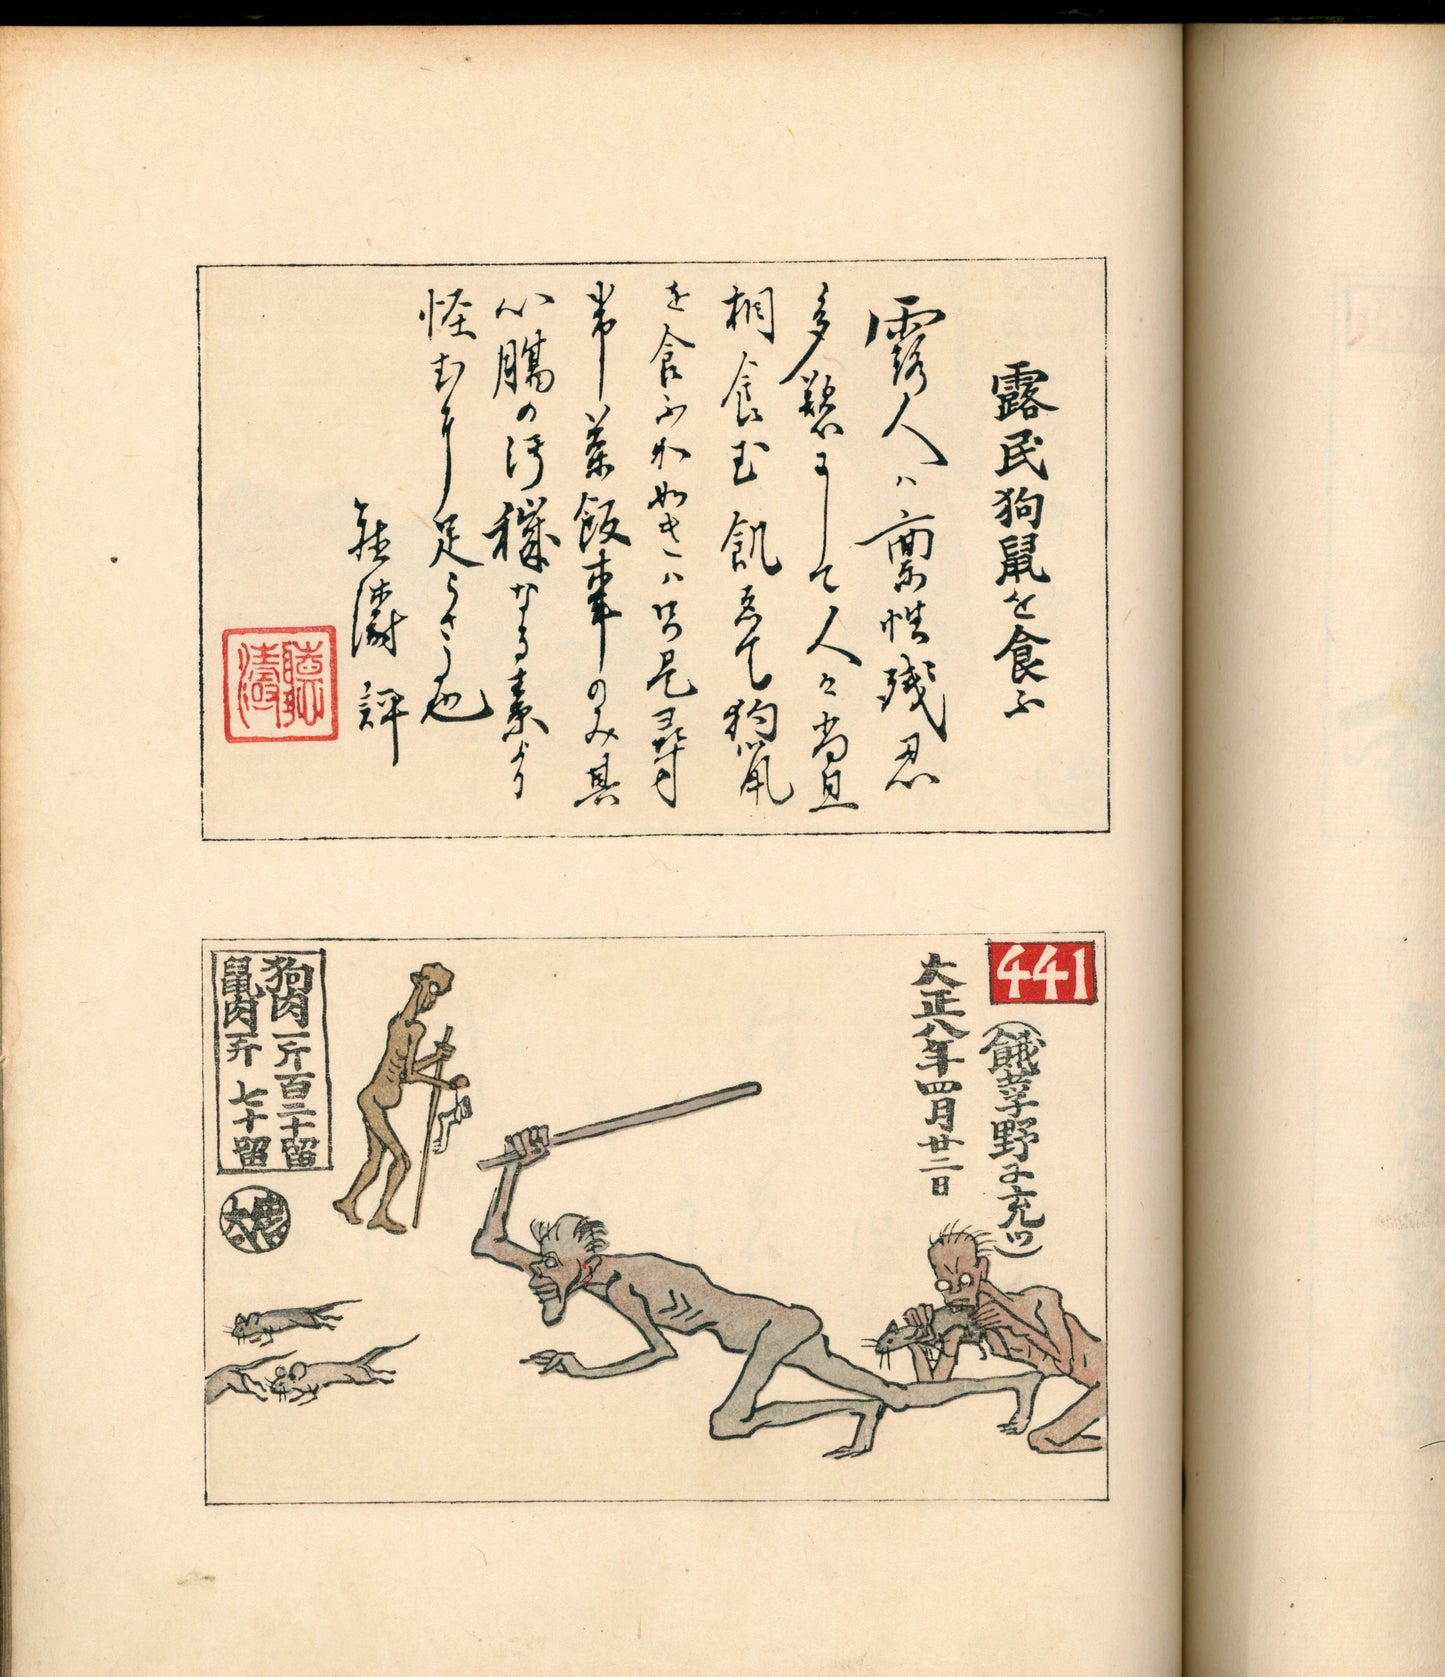 露民狗鼠を食ふ
露人ハ稟性残忍
多慾にして人々尚且
相食む飢ゑて狗鼠
を食ふか如きハ只是尋
常茶飯事のみ其
心腸の汚穢なる素より
怪むに足らさる也
聴濤 評
聴濤
441
(餓莩野に充ツ)
大正八年四月廿二日
狗肉一斤百二十留
鼠肉一斤 七十留